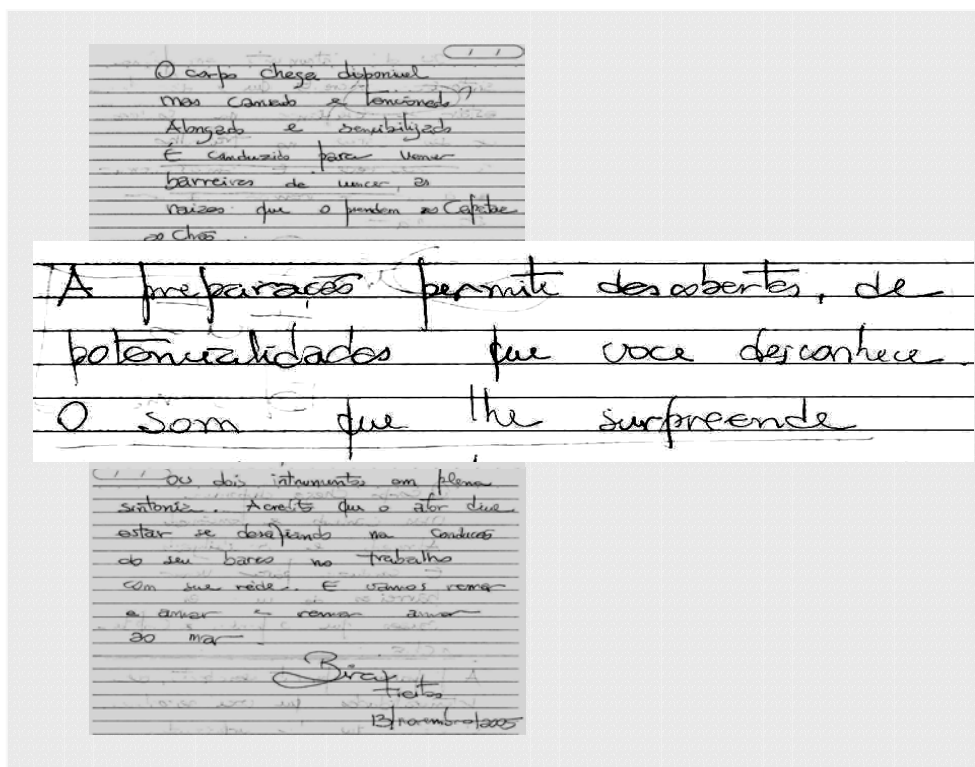 O corpo chega disponivel
mas cansado e tencionado
Alongado e sensibilizado
É conduzido para vencer
barreiras de vencer, as
raizes que o prendem ao
ao Chão.
A preparação permite descobertas, de
potencialidades que voce desconhece
O som que lhe surpreende
ou dois intrumentos em plena
sintonia. Acredito que o ator deve
estar se desafiando na conducao
do seu barco, no trabalho
com sua rede. E vamos remar
e amar e remar amar
ao mar
Bira
Freitas
13/novembro/2005